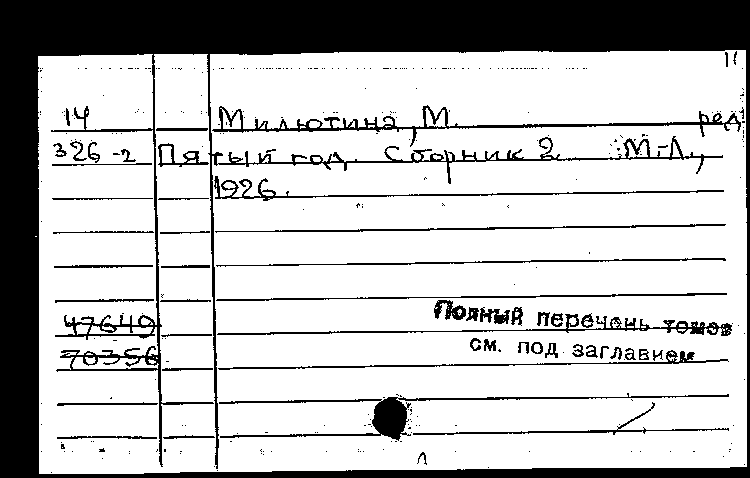 14 Милютина, М. ред
326-2 Пятый год. Сборник 2. М.-Л.,
1926.
47649
70356
Полный перечень томов
см. под заглавием